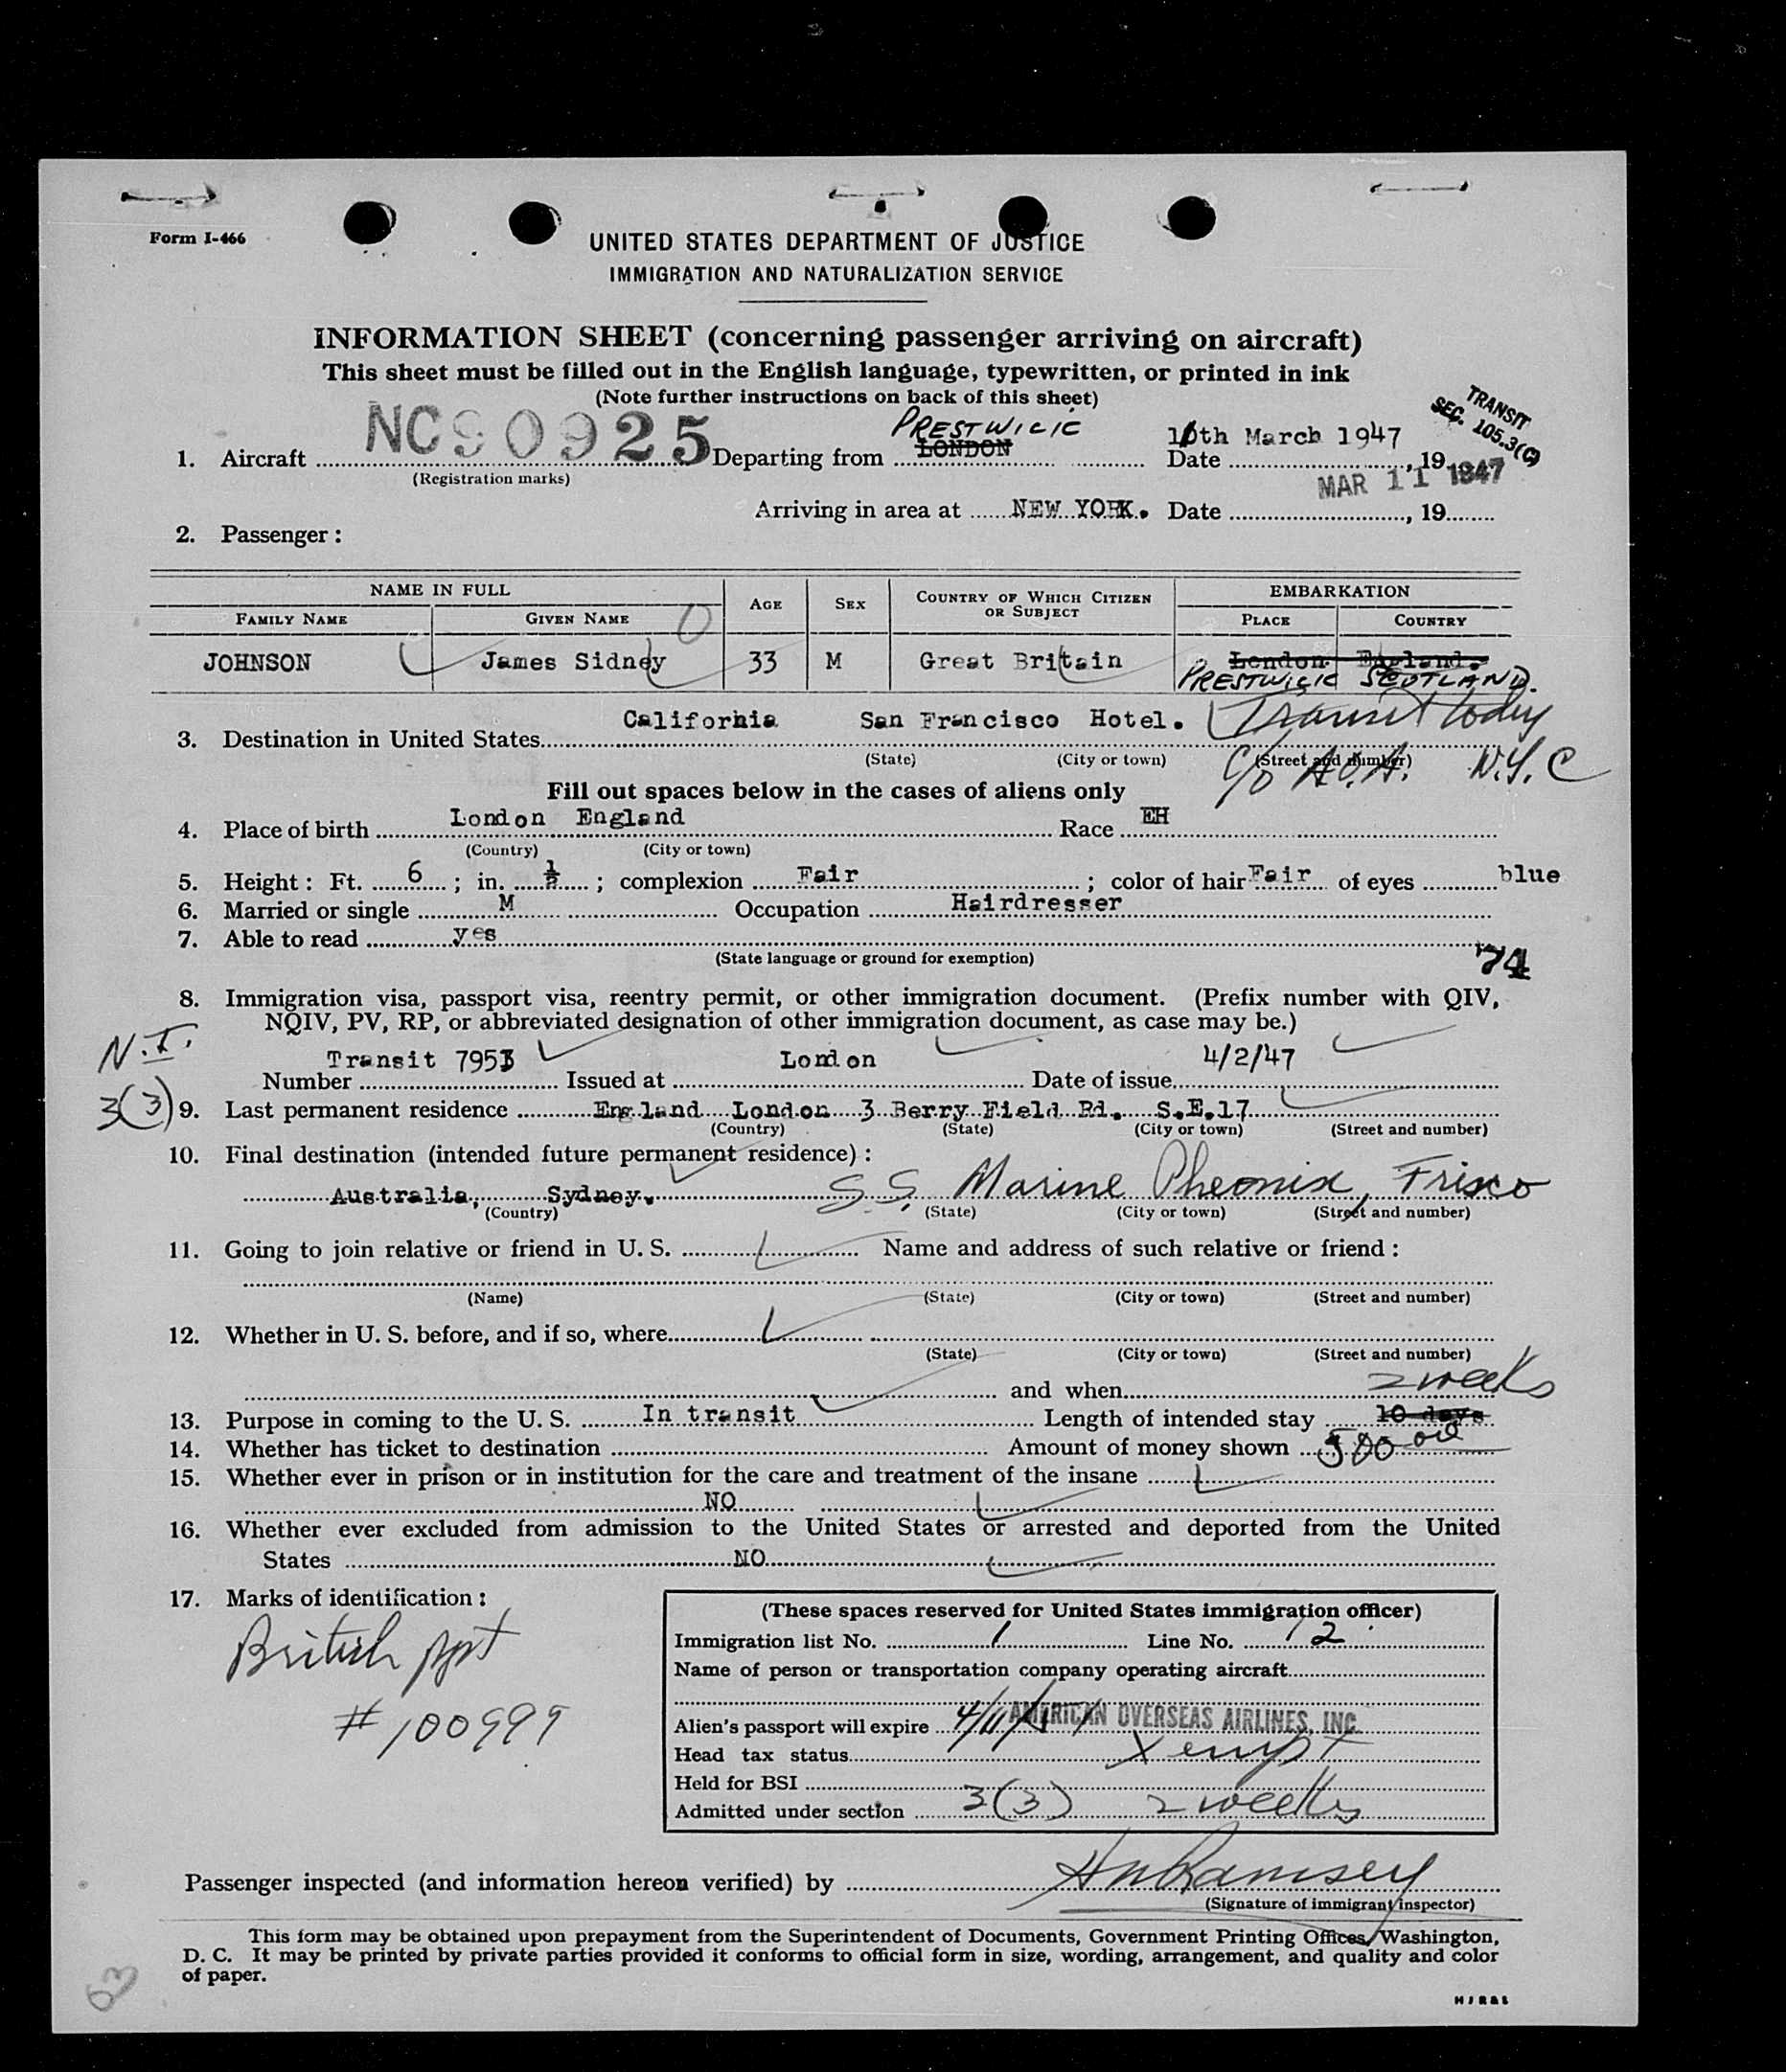 Form I-466
UNITED STATES DEPARTMENT OF JUSTICE
IMMIGRATION AND NATURALIZATION SERVICE
INFORMATION SHEET (concerning passenger arriving on aircraft)
This sheet must be filled out in the English language, typewritten, or printed in ink
(Note further instructions on back of this sheet)
TRANSIT
SEC. 105.3(C)
PRESTWICK
1. Aircraft NC90925 Departing from LONDON Date 10th March 1947, 19
(Registration marks)
MAR 11 1947
Arriving in area at NEW YORK. Date , 19
2. Passenger:
NAME IN FULL AGE SEX COUNTRY OF WHICH CITIZEN OR SUBJECT EMBARKATION
FAMILY NAME GIVEN NAME PLACE COUNTRY
JOHNSON James Sidney 33 M Great Britain London England.
PRESTWICK SCOTLAND.
3. Destination in United States California San Francisco Hotel. Transit today
(State) (City or town) (Street and number)
c/o A.O.A. N.Y.C
Fill out spaces below in the cases of aliens only
4. Place of birth London England Race EH
(Country) (City or town)
5. Height: Ft. 6; in. ½; complexion Fair; color of hair Fair of eyes blue
6. Married or single M Occupation Hairdresser
7. Able to read yes
(State language or ground for exemption)
74
8. Immigration visa, passport visa, reentry permit, or other immigration document. (Prefix number with QIV,
NQIV, PV, RP, or abbreviated designation of other immigration document, as case may be.)
N.I.
Number Transit 7953 Issued at London Date of issue 4/2/47
3(3)
9. Last permanent residence England London 3 Berry Field Rd. S.E.17
(Country) (State) (City or town) (Street and number)
10. Final destination (intended future permanent residence):
Australia, Sydney. S.S. Marine Pheonix, Frisco
(Country) (State) (City or town) (Street and number)
11. Going to join relative or friend in U. S. Name and address of such relative or friend:
(Name) (State) (City or town) (Street and number)
12. Whether in U. S. before, and if so, where
(State) (City or town) (Street and number)
and when
2 weeks
13. Purpose in coming to the U. S. In transit Length of intended stay 10 days
14. Whether has ticket to destination Amount of money shown 500
15. Whether ever in prison or in institution for the care and treatment of the insane
NO
16. Whether ever excluded from admission to the United States or arrested and deported from the United
States NO
17. Marks of identification:
British ppt
# 100999
(These spaces reserved for United States immigration officer)
Immigration list No. 1 Line No. 12
Name of person or transportation company operating aircraft
AMERICAN OVERSEAS AIRLINES, INC.
Alien's passport will expire
Head tax status Xempt
Held for BSI
Admitted under section 3(3) 2 weeks
Passenger inspected (and information hereon verified) by HWRamsey
(Signature of immigrant inspector)
This form may be obtained upon prepayment from the Superintendent of Documents, Government Printing Office, Washington,
D. C. It may be printed by private parties provided it conforms to official form in size, wording, arrangement, and quality and color
of paper.
63